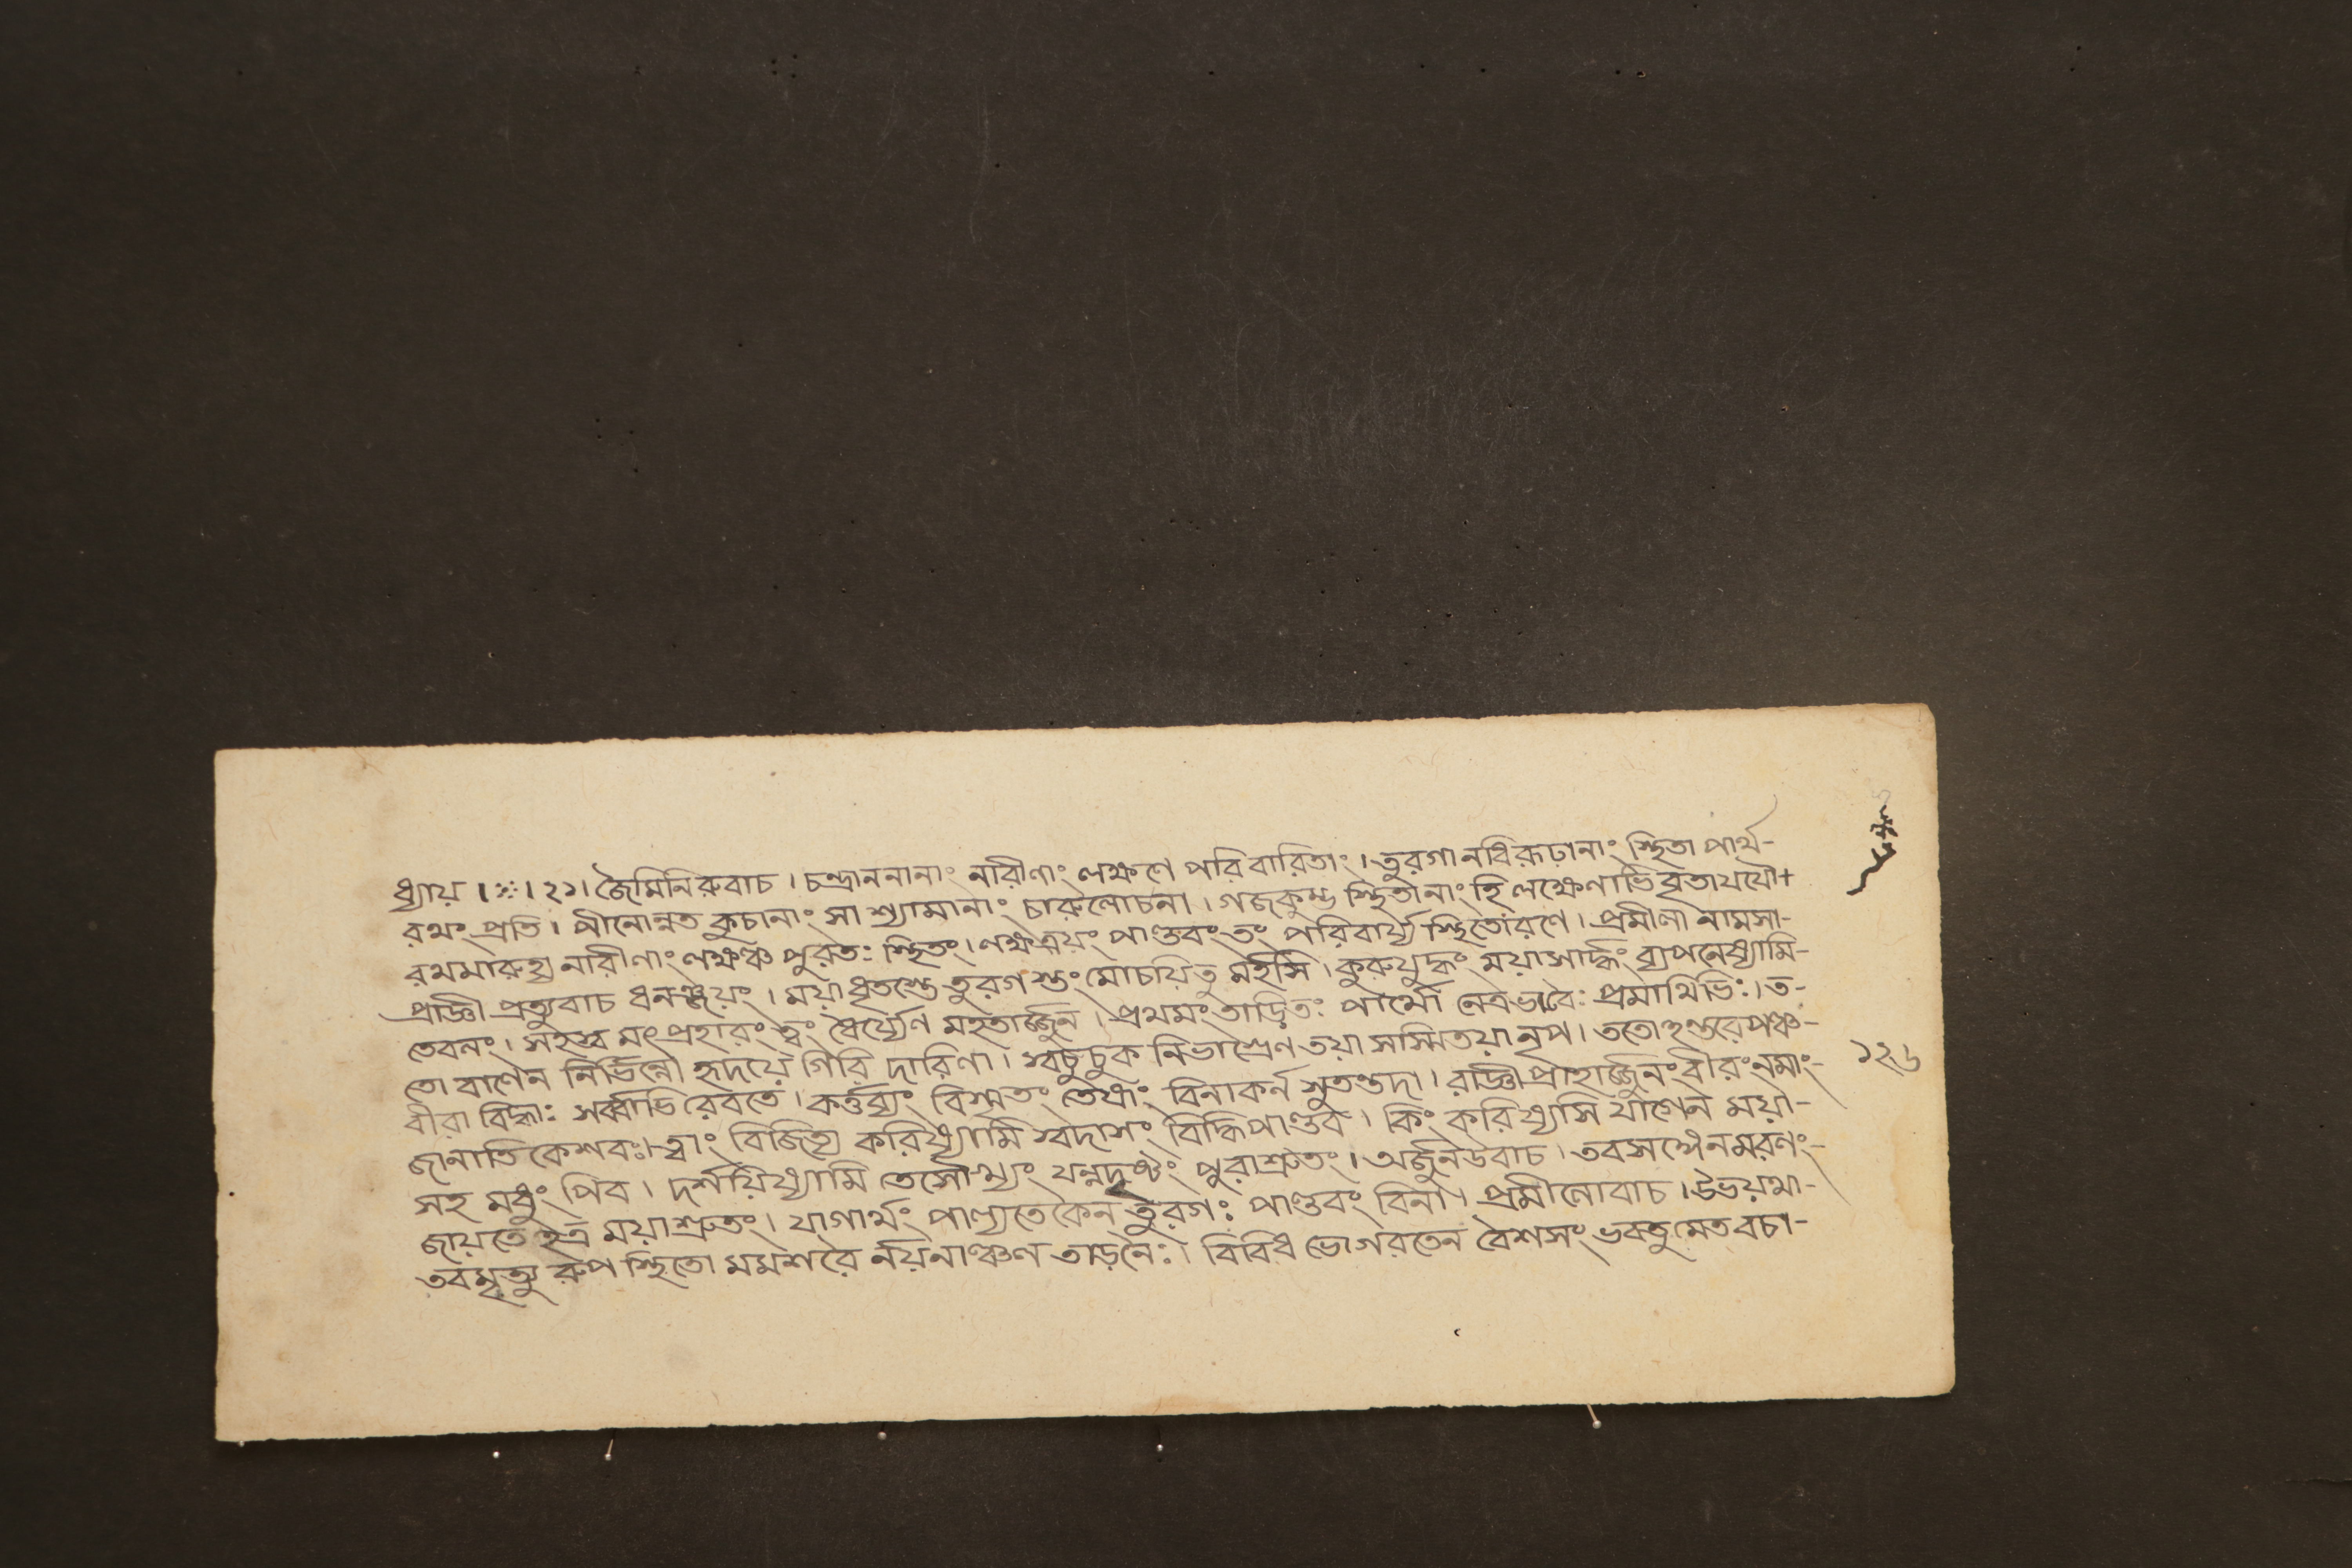 ধ্যায় ।ঃ। ২১। জৈমিনিরুবাচ । চন্দ্রাননানাং নারীণাং লক্ষণে পরিবারিতাং । তুরগানধিরূঢানাং স্থিতা পার্থ-
রথং প্রতি । পীনোন্নত কুচানাং সা শ্যামানাং চারুলোচনা । গজকুম্ভ স্থিতানাং হি লক্ষেণাভিবৃতাযযৌ+
রথমারুহ্য নারীণাং লক্ষঞ্চ পুরতঃ স্থিতং । লক্ষত্রয়ং পাণ্ডবং তং পরিবার্য্য স্থিতোরণে । প্রমীলা নামসা-
প্রাজ্ঞী প্রত্যুবাচ ধনঞ্জয়ং । ময়াধৃতস্তে তুরগ স্তং মোচয়িতু মর্হসি । কুরুযুদ্ধং ময়াসার্দ্ধং ব্যপনেষ্যামি-
তেবলং । সহস্ব মৎ প্রহারং ত্বং ধৈর্য্যেণ মহতার্জ্জুন । প্রথমং তাড়িতঃ পার্থো নেত্রভাবৈঃ প্রমাথিভিঃ । ত-
তো বাণেন নির্ভিন্নো হৃদয়ে গিরি দারিণা । স্বচুচুক নিভাগ্রেণ তয়া সস্মিতয়া নৃপ । ততোহন্তরে পঞ্চ-
বীরা বিদ্ধাঃ সর্ব্বাভি রেবতে । কর্ত্তব্যং বিস্মৃতং তেষাং বিনাকর্ন সুতন্তদা । রাজ্ঞীপ্রাহার্জ্জুনং বীরং নমাং-
জানাতি কেশবঃ । ত্বাং বিজিত্য করিষ্যামি স্বদাসং বিদ্ধিপাণ্ডব । কিং করিষ্যসি যাগেন ময়া-
সহ মধুং পিব । দর্শয়িষ্যামি তেসৌখ্যং যন্নদৃষ্টং পুরাশ্রুতং । অর্জুনউবাচ । তবসঙ্গেনমরণং-
জায়তে হত্র ময়াশ্রুতং । যাগার্থং পাল্যতে কৈন তুরগঃ পাণ্ডবং বিনা । প্রমীলোবাচ । উভয়থা-
তবমৃত্যু রুপ স্থিতো মমশরৈ র্নয়নাঞ্চল তাড়নৈঃ । বিবিধ ভোগরতেন বৈশসং ভবতুমেতবচা-
১২৬